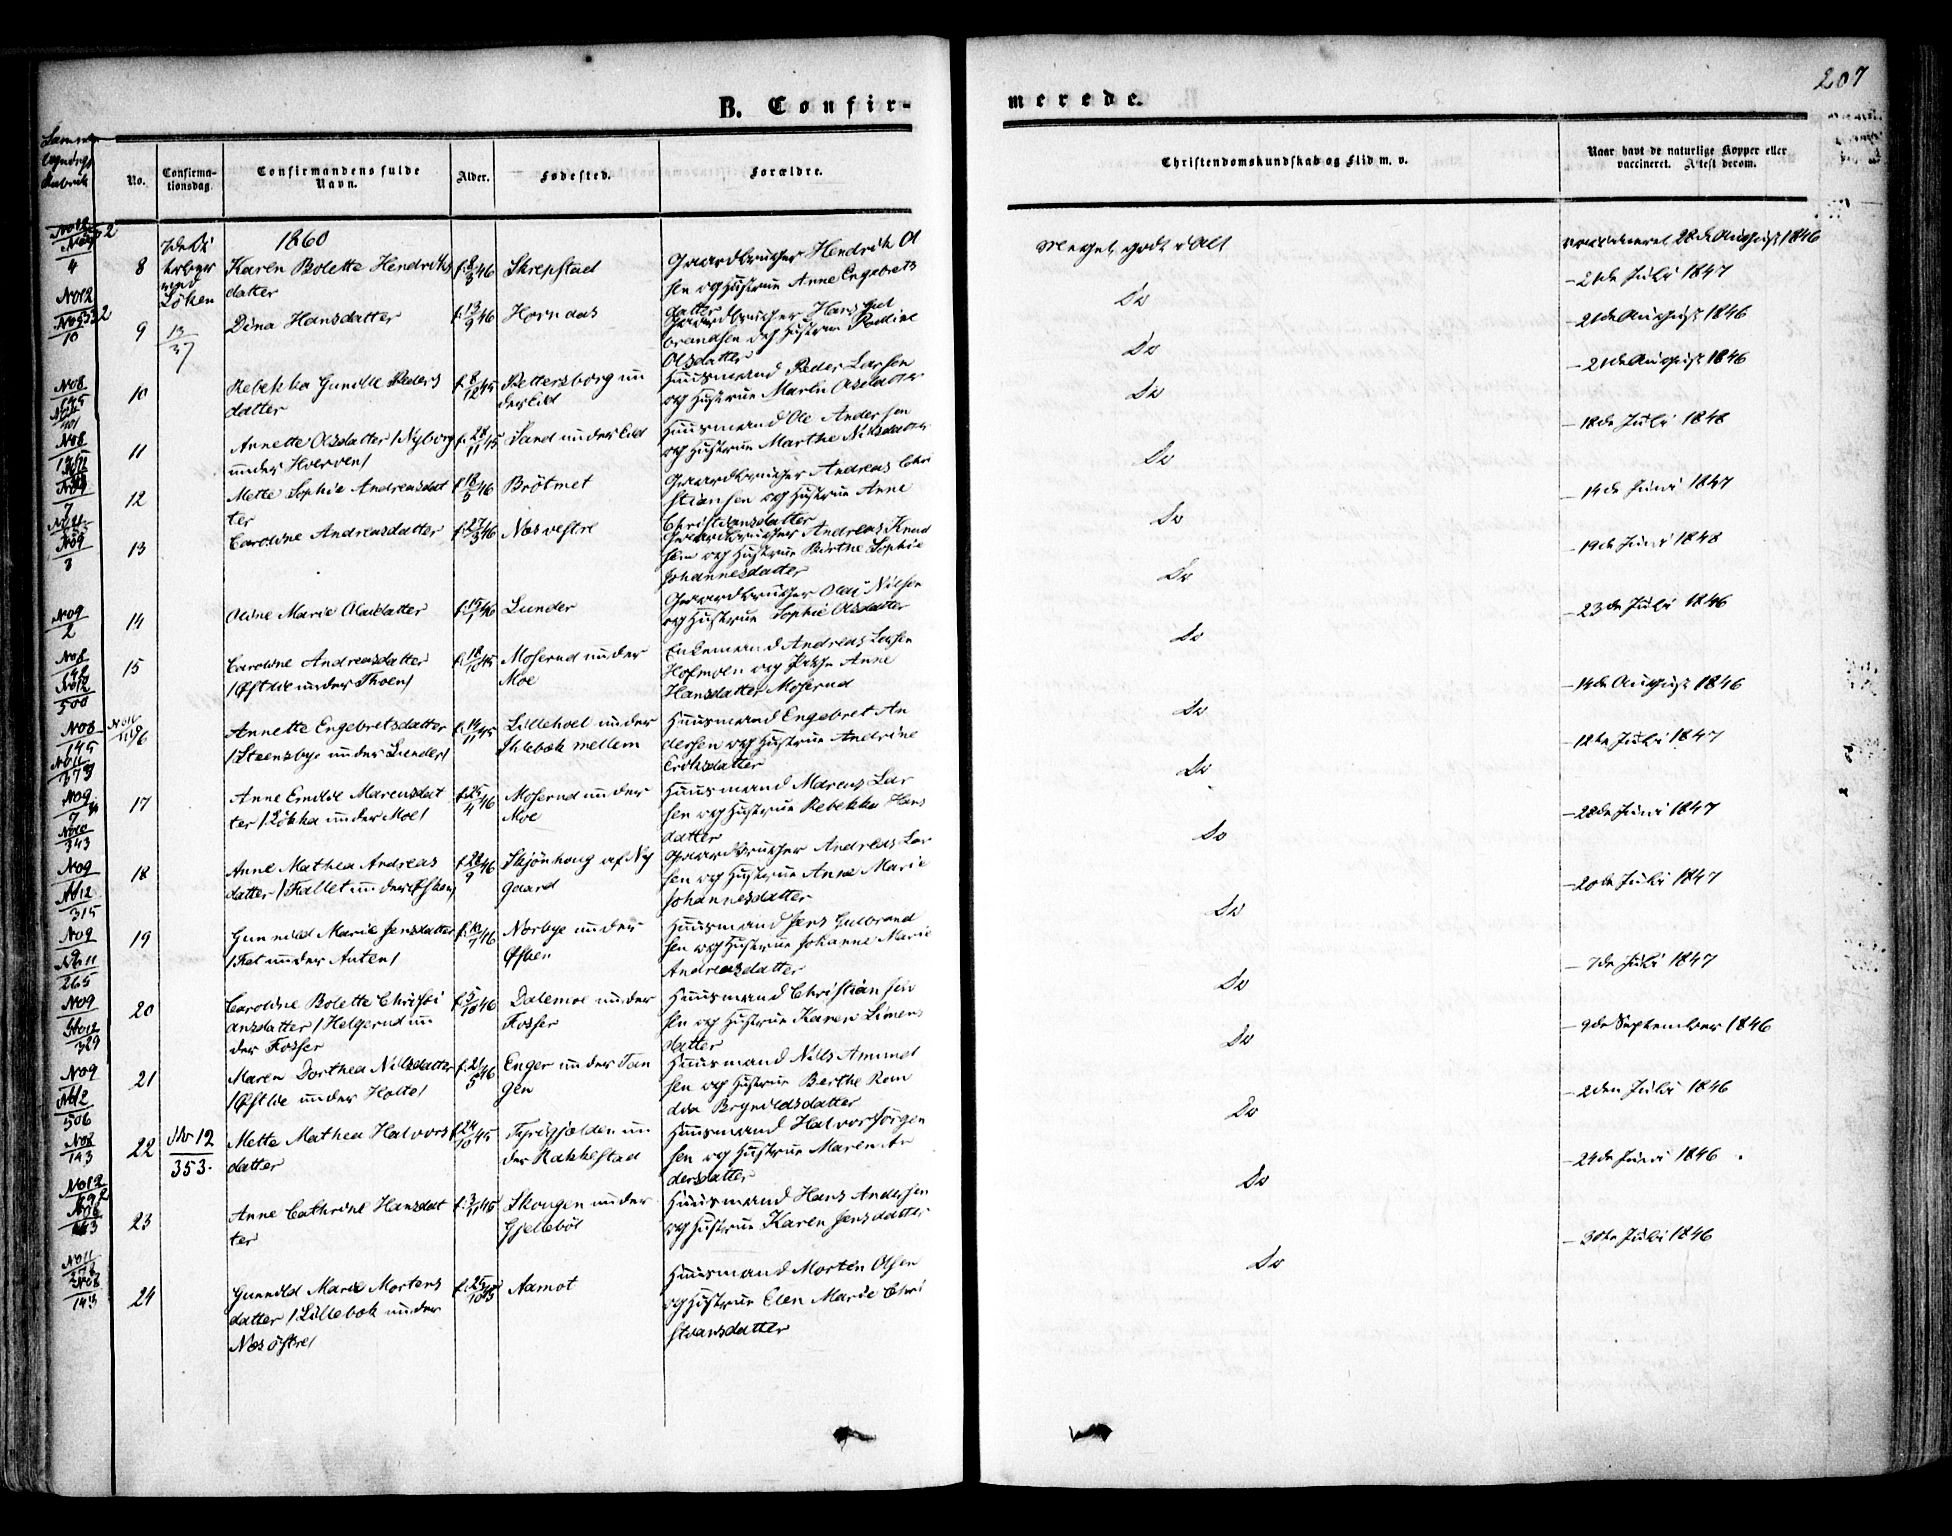 207
B. Confir-
merede.
No.
Confirma-
tionsdag.
Confirmandens fulde
Navn.
Alder.
Fødested.
Forældre.
Christendomskundskab og Flid m. v.
Naar havt de naturlige Kopper eller
vaccineret. Attest derom.
1860
8 Karen Bolette Hendriks
datter
f. 8/3 46
Skrepstad
Gaardbruger Hendrik Ol
sen og Hustrue Anne Engebrets
datter
Meget godt i Alt
vaccineret 28de August 1846
Løken
9 13/37 Dina Hansdatter
f. 13/9 46
Horndas
Gaardbruger Hans Gul
brandsen og Hustrue Pauline
Olsdatter
Do
- 21de Juli 1847
10 Rebekka Gunille Peders
datter
f. 8/12 45
Pettersborg un
der Eid
Huusmand Peder Larsen
og Hustrue Maren Olsdatter
Do
- 21de August 1846
11 Annette Olsdatter /Nyborg
under Hverven/
f. 28/11 45
Sand under Eid
Huusmand Ole Andersen
og Hustrue Marthe Nilsdatter
Do
- 21de August 1846
12 Mette Sophie Andreasdat
ter
f. 18/5 46
Brøtmet
Gaardbruger Andreas Chri
stiansen og Hustrue Anne
Christiansdatter
Do
- 18de Juli 1848
13 Caroline Andreasdatter
f. 27/3 46
Næs vestre
Gaardbruger Andreas Knud
sen og Hustrue Birthe Sophie
Johannesdatter
Do
- 14de Juni 1847
14 Oline Marie Olaidatter
f. 15/1 46
Lunder
Gaardbruger Olai Nilsen
og Hustrue Sophie Olsdatter
Do
- 19de Juni 1848
15 Caroline Andreasdatter
/Østlie under Thoen/
f. 18/10 45
Moserud under
Moe
Enkemand Andreas Larsen
Hofmoen og Pige Anne
Hansdatter Moserud
Do
- 23de Juli 1846
16 Annette Engebretsdatter
/Steensbye under Lunder/
f. 14/11 45
Lillehoel under
Ihlebæk mellem
Huusmand Engebret An
dersen og Hustrue Andrine
Eriksdatter
Do
- 14de August 1846
17 Anne Emilie Marcusdat
ter /Løkka under Moe/
f. 25/4 46
Moserud under
Moe
Huusmand Marcus Lar
sen og Hustrue Rebekka Hans
datter
Do
- 12te Juli 1847
18 Anne Mathea Andreas
datter /Fallet under Øsken/
f. 22/9 46
Skjønhaug af Ny
gaard
Gaardbruger Andreas Lar
sen og Hustrue Anne Marie
Johannesdatter
Do
- 28de Juni 1847
19 Gunnild Marie Jensdatter
/Kat under Auten/
Norbye under
Øsken
Huusmand Jens Gulbrand
sen og Hustrue Johanne Marie
Andreasdatter
Do
- 20de Juli 1847
20 Caroline Bolette Christi
ansdatter /Helgerud un
der Fosser
f. 5/10 46
Dalemoe under
Fosser
Huusmand Christian
sen og Hustrue Karen Simens
datter
Do
- 7de Juli 1847
21 Maren Dorthea Nilsdatter
/Østlie under Holte/
f. 21/5 46
Enger under Tan
gen
Huusmand Nils Amund
sen og Hustrue Berthe Ran
dia Brynildsdatter
Do
- 9de September 1846
22 No 12/353. Mette Mathea Halvors
datter
f. 24/10 45
Fyrigjelden un
der Rakkestad
Huusmand Halvor Jørgen
sen og Hustrue Maren An
dersdatter
Do
- 2den Juli 1846
23 Anne Cathrine Hansdat
ter
f. 3/11 45
Skougen under
Gjellebøl
Huusmand Hans Andersen
og Hustrue Karen Jensdatter
Do
- 24de Juni 1846
24 Gunnild Marie Mortens
datter /Lillebæk under
Næs østre/
f. 25/10 45
Aamot
Huusmand Morten Olsen
og Hustrue Elen Marie Chri
stiansdatter
Do
- 30te Juli 1846